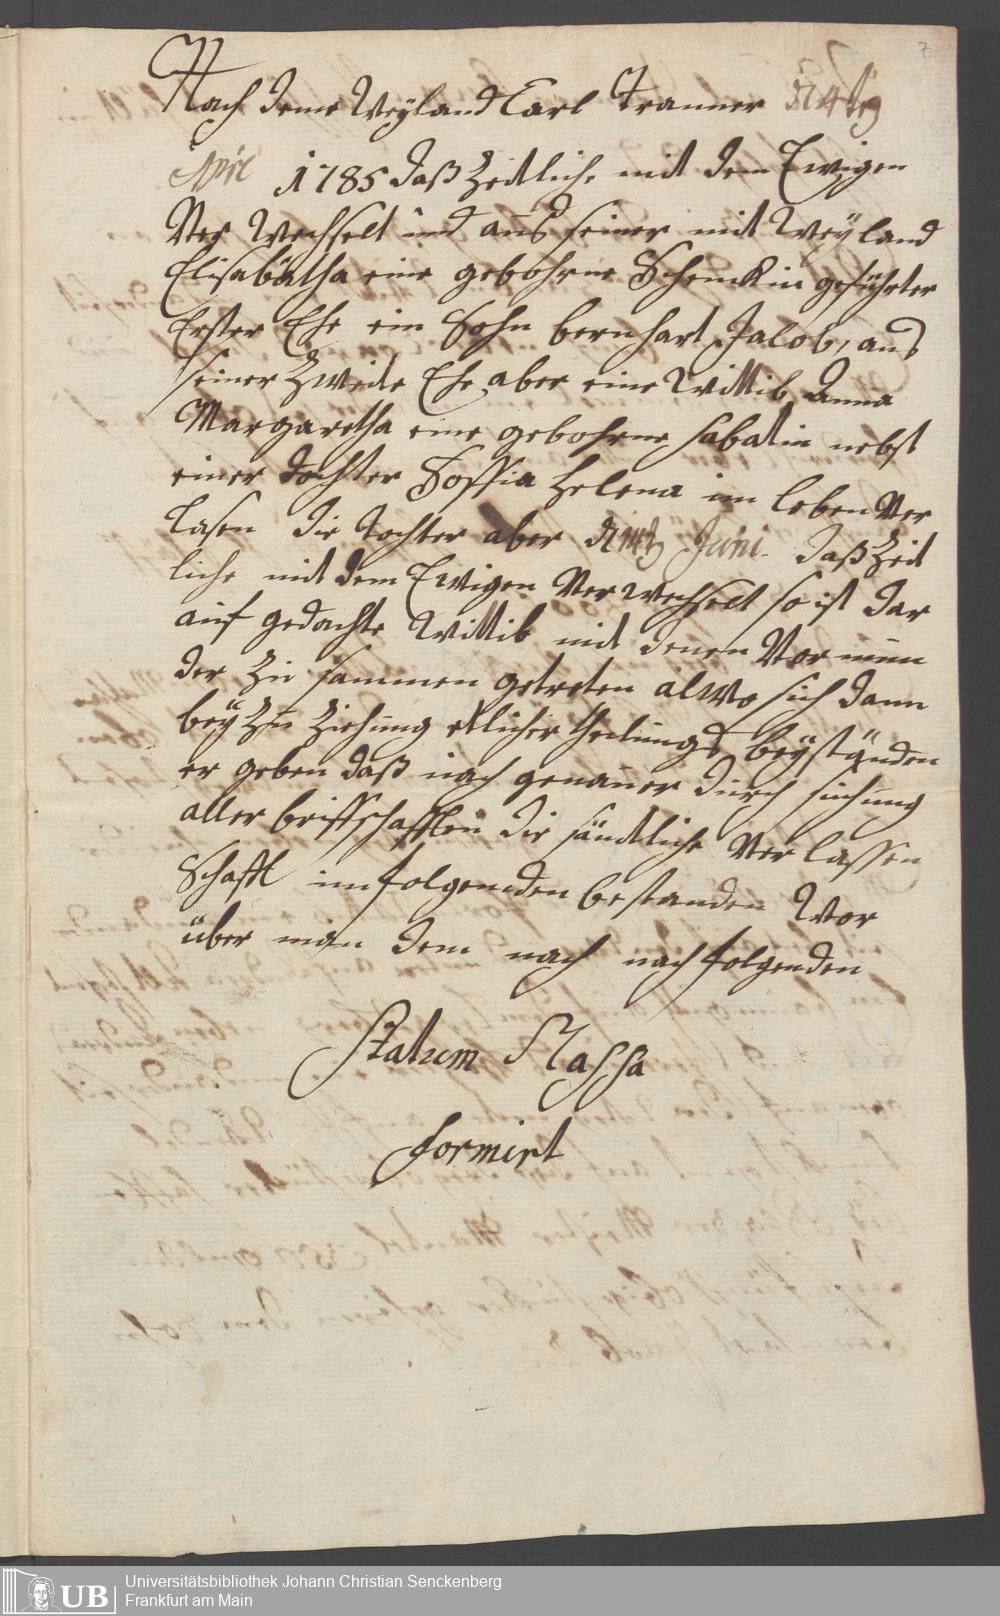 7
Nach deme Weyland Carl Tranner d 14t
April 1785 daß Zeitliche mit dem Ewigen
Ver Wechselt und auß seiner mit Weyland
Elisabätha eine gebohrne Schenckin geführter
Erster Ehe ein Sohn bernhart Jacob, auß
seiner Zweite Ehe aber eine Wittib Anna
Margaretha eine gebohrne sabatin nebst
einer dochter Soffia helena im leben Ver
lasen die tochter aber Juni daß Zeit
liche mit dem Ewigen Ver wechselt so ist dar
auf gedachte Wittib mit denen Vor mün
der Zu sammen getreten alwo sich dann
beÿ Zu Ziehung etlicher theilungs beÿständen
er geben daß nach genauer durch suchung
aller briffschafften die sämtliche Ver lassen
Schafft im folgenden bestanden Wor
über man dem nach nach folgenden
Statum Massa
formirt
UB
Universitätsbibliothek Johann Christian Senckenberg
Frankfurt am Main